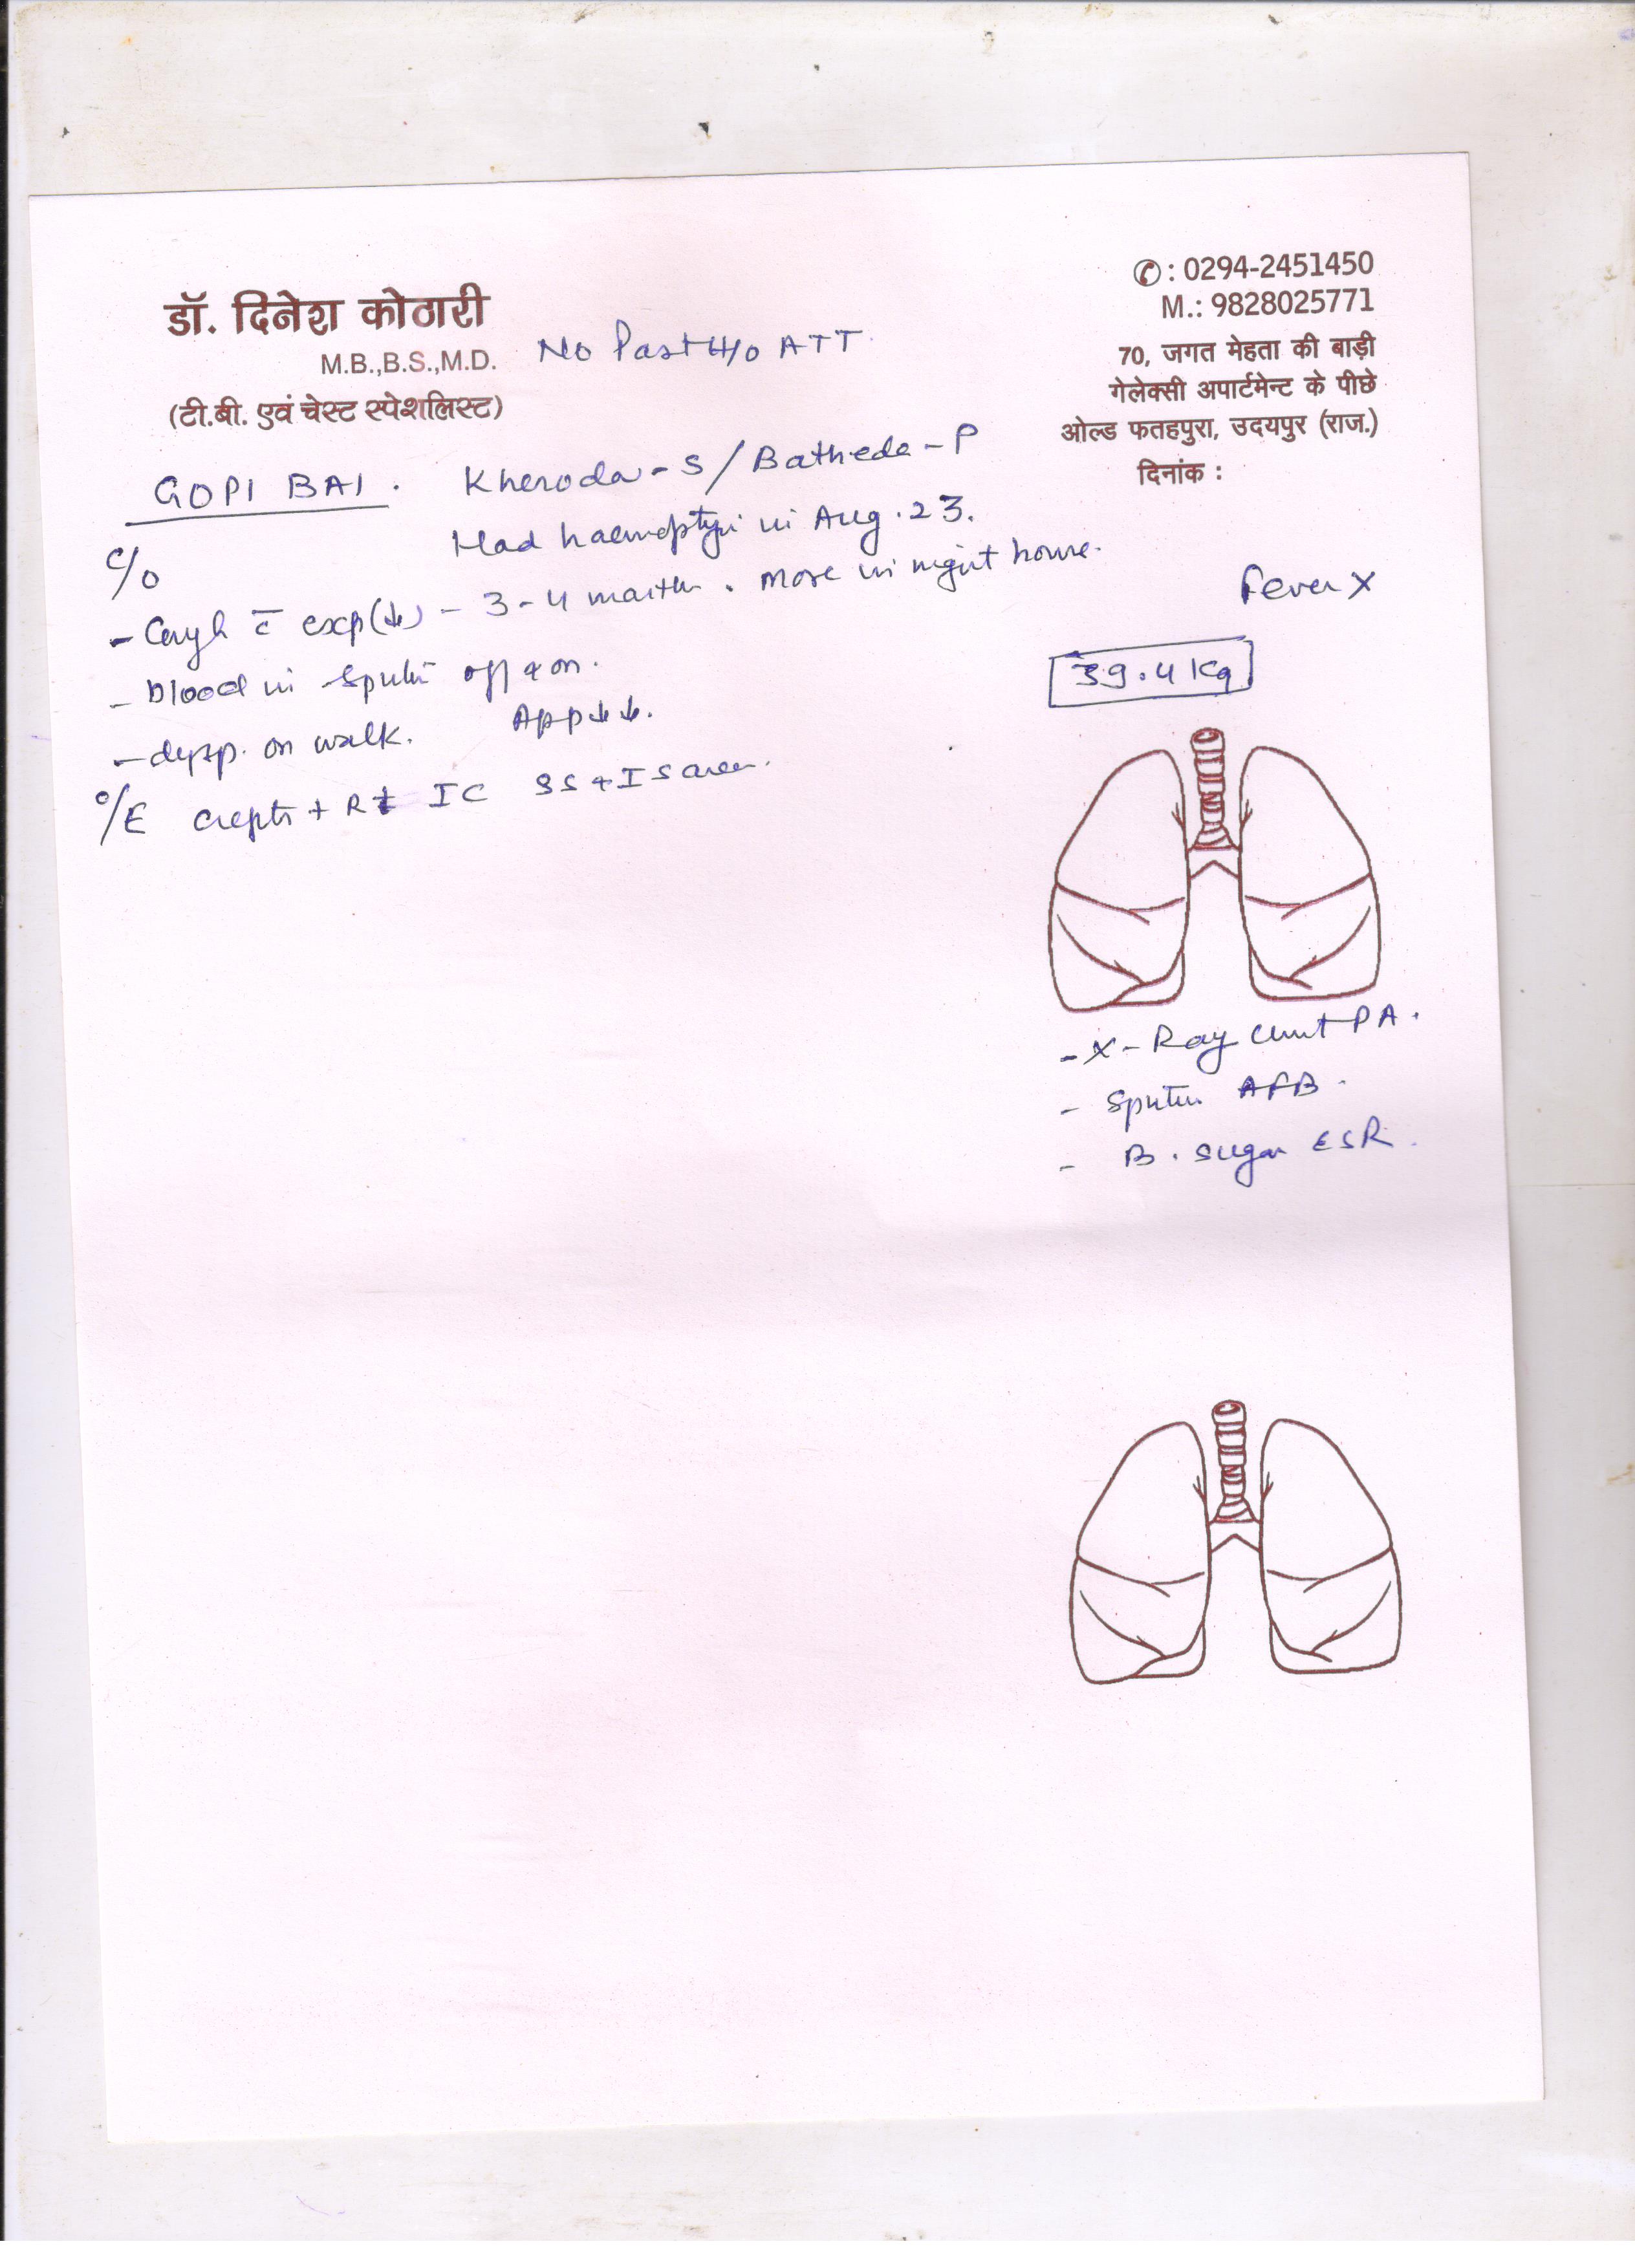 डॉ. दिनेश कोठारी
M.B.,B.S.,M.D.
(टी.बी. एवं चेस्ट स्पेशलिस्ट)
No Past H/o ATT.
✆ : 0294-2451450
M.: 9828025771
70, जगत मेहता की बाड़ी
गेलेक्सी अपार्टमेन्ट के पीछे
ओल्ड फतहपुरा, उदयपुर (राज.)
दिनांक :
GOPI BAI. Kheroda - S / Batheda - P
Had haemoptysis in Aug. 23.
C/O
- Cough c̄ exp(↓) - 3-4 months. More in night hours.
Fever X
- Blood in sputum off & on.
39.4 Kg
- dysp. on walk. App ↓↓.
O/E Crepts + Rt IC SS + IS area.
- X-Ray Chest PA.
- Sputum AFB.
- B. Sugar ESR.